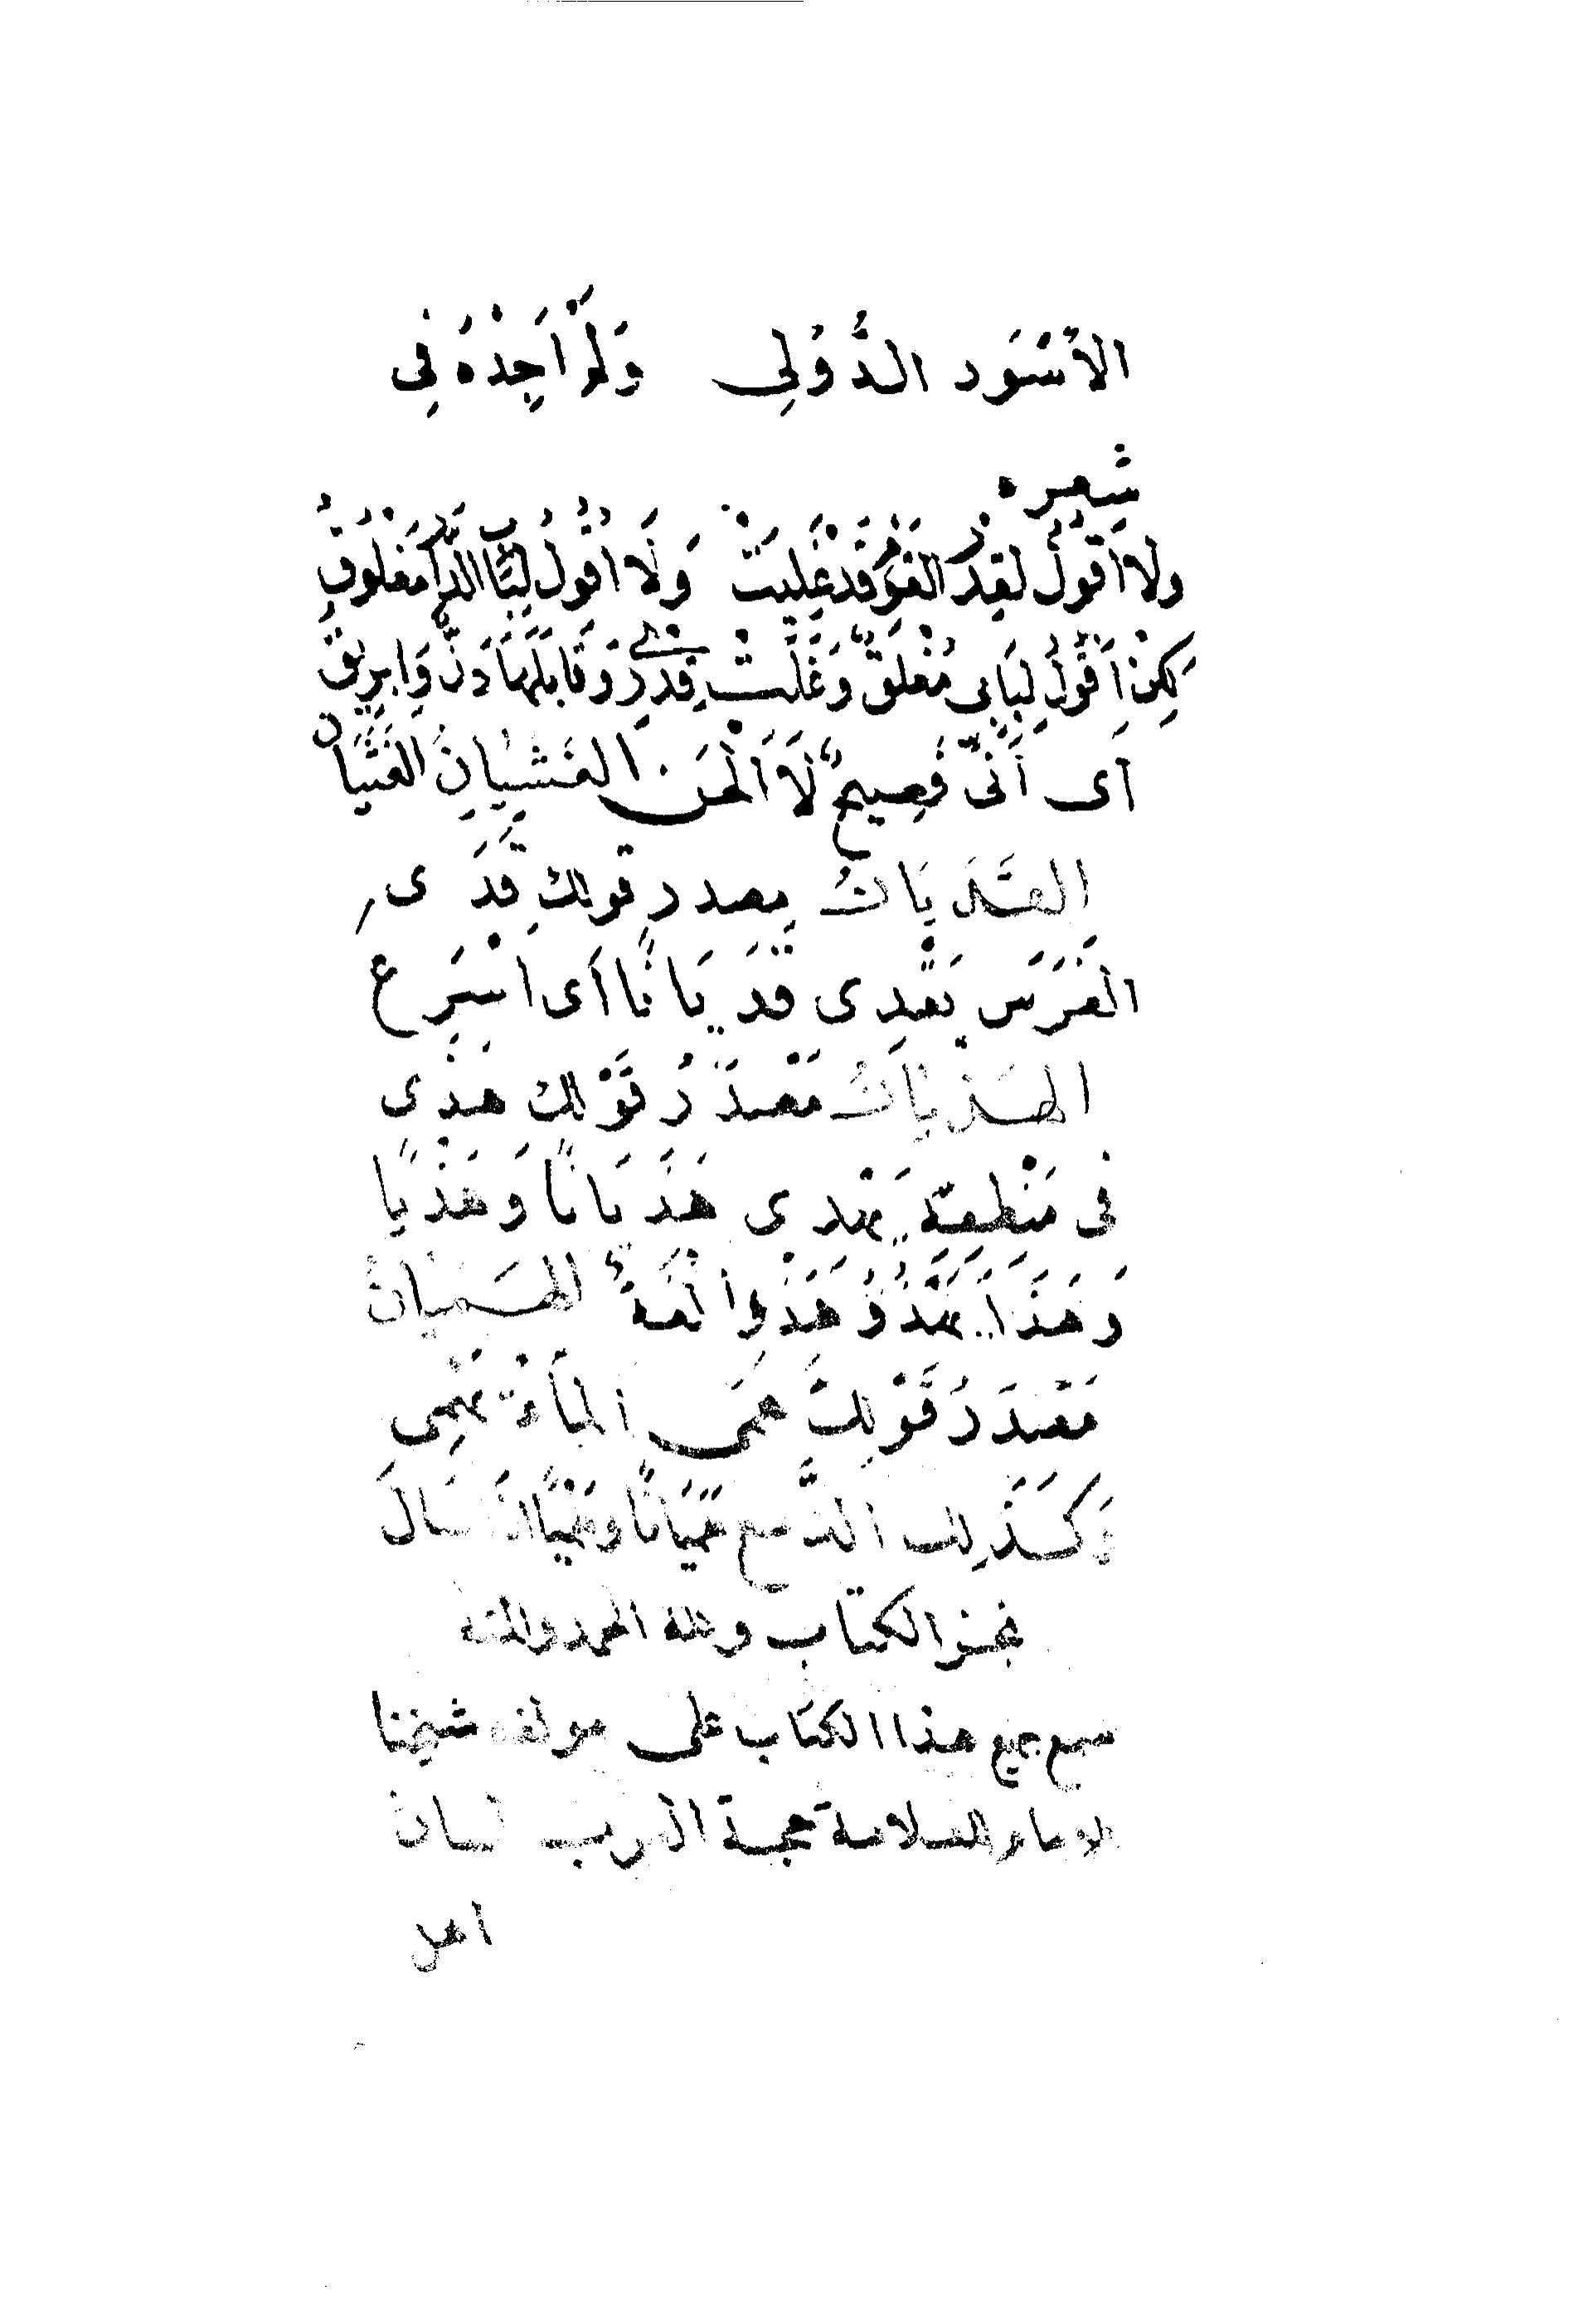 الأَسْوَد الدُّوَلِى وَلَمْ اَجِدْهُ فِى
شِعره
ولا اَقُولُ لقِدْرِ القَوْمِ قَدْ غَلِيَتْ وَلَا اَقُولُ لِبَابِ الدَّارِ مَغْلُوقُ
لَكِنْ اَقُولُ لِبَابِى مُغْلَقٌ وَغَلَتْ قِدْرِى وَقَابَلَهَا دَنٌّ وَاِبرِيقُ
اَى اَنِّى فَصِيحٌ لَا اَلْحَن الغَشَيَانُ الغَثَيَان
القَدَيَانُ مصدر قولكِ قَدَى
الفَرَسَ يَقْدِى قَدَيَانًا اَى اَسْرَع
الهَذَيَانُ مَصْدَرُ قَوْلك هَذَى
فى مَنْطِقِهِ يَهْذِى هَذَيَانًا وَهَذْيًا
وَهَذَا يَهْذُو هَذْوًا لُغَةٌ الهَمَيَانُ
مَصْدَرُ قَوْلِكَ هَمَى المَاءُ يَهْمِى
وَكَذَلِك الدَّمع هَمَيَانًا وهَمْيًا اذَا سَالَ
نجز الكتاب ولله الحمد والمنه
سمع جميع هذا الكتاب على مولفه شيخنا
الامام العلامة حجة العرب لسان
اهل